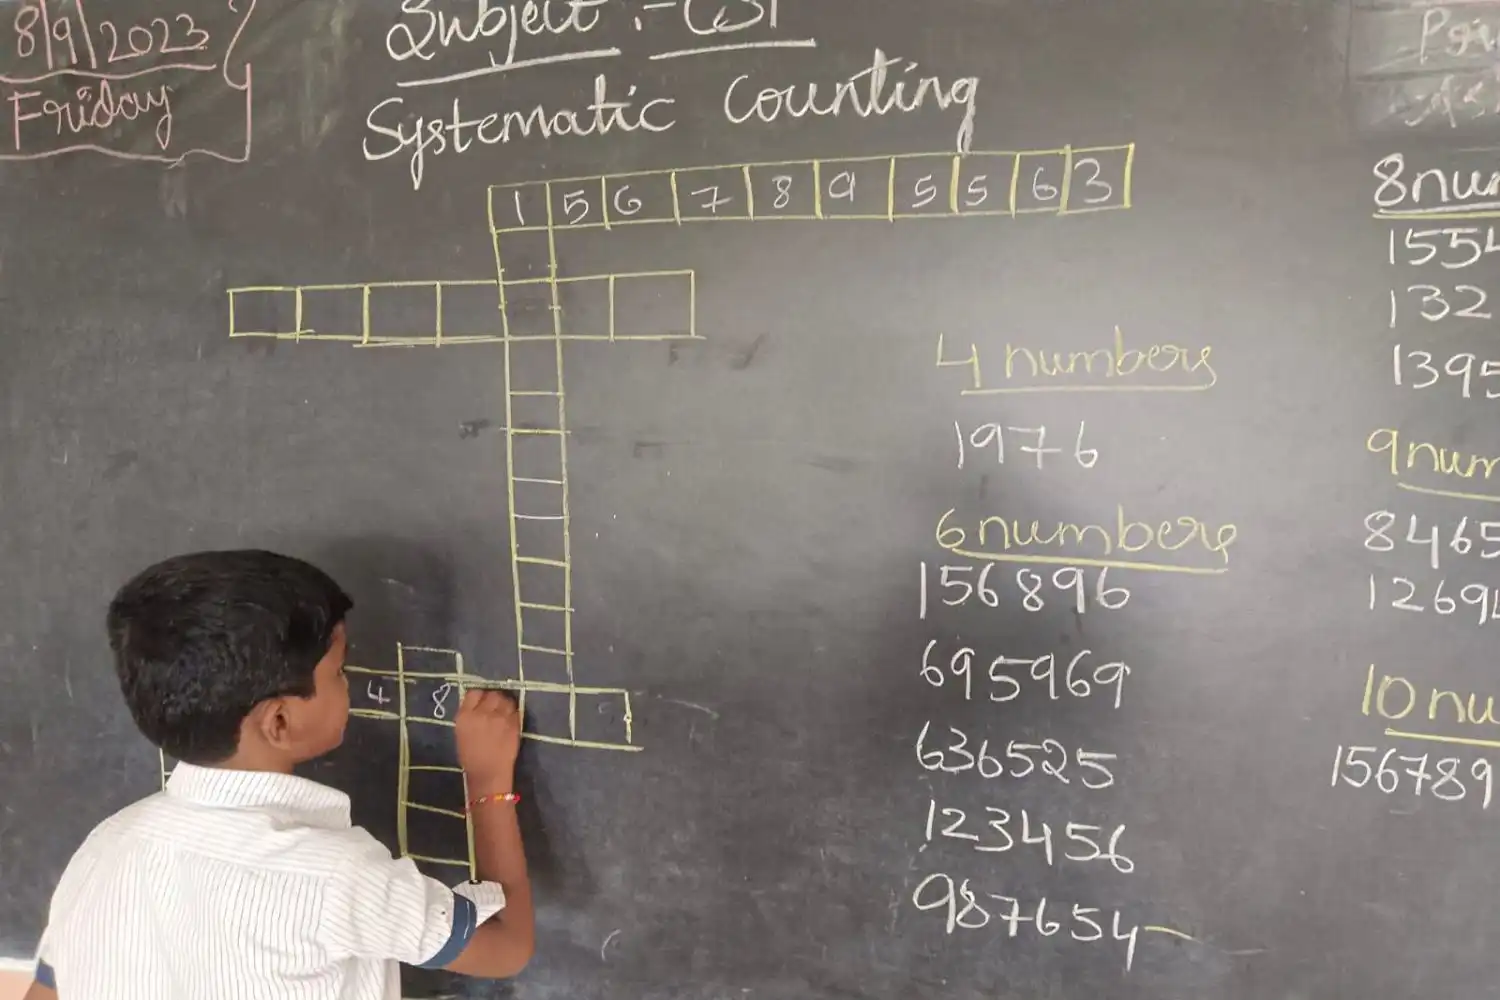 8/9/2023
Friday
Subject :-
Systematic Counting
1 5 6 7 8 9 5 5 6 3
4 8
4 numbers
1976
6 numbers
156896
695969
636525
123456
987654
8 nu
1554
132
1395
9 num
8465
1269
10 nu
156789